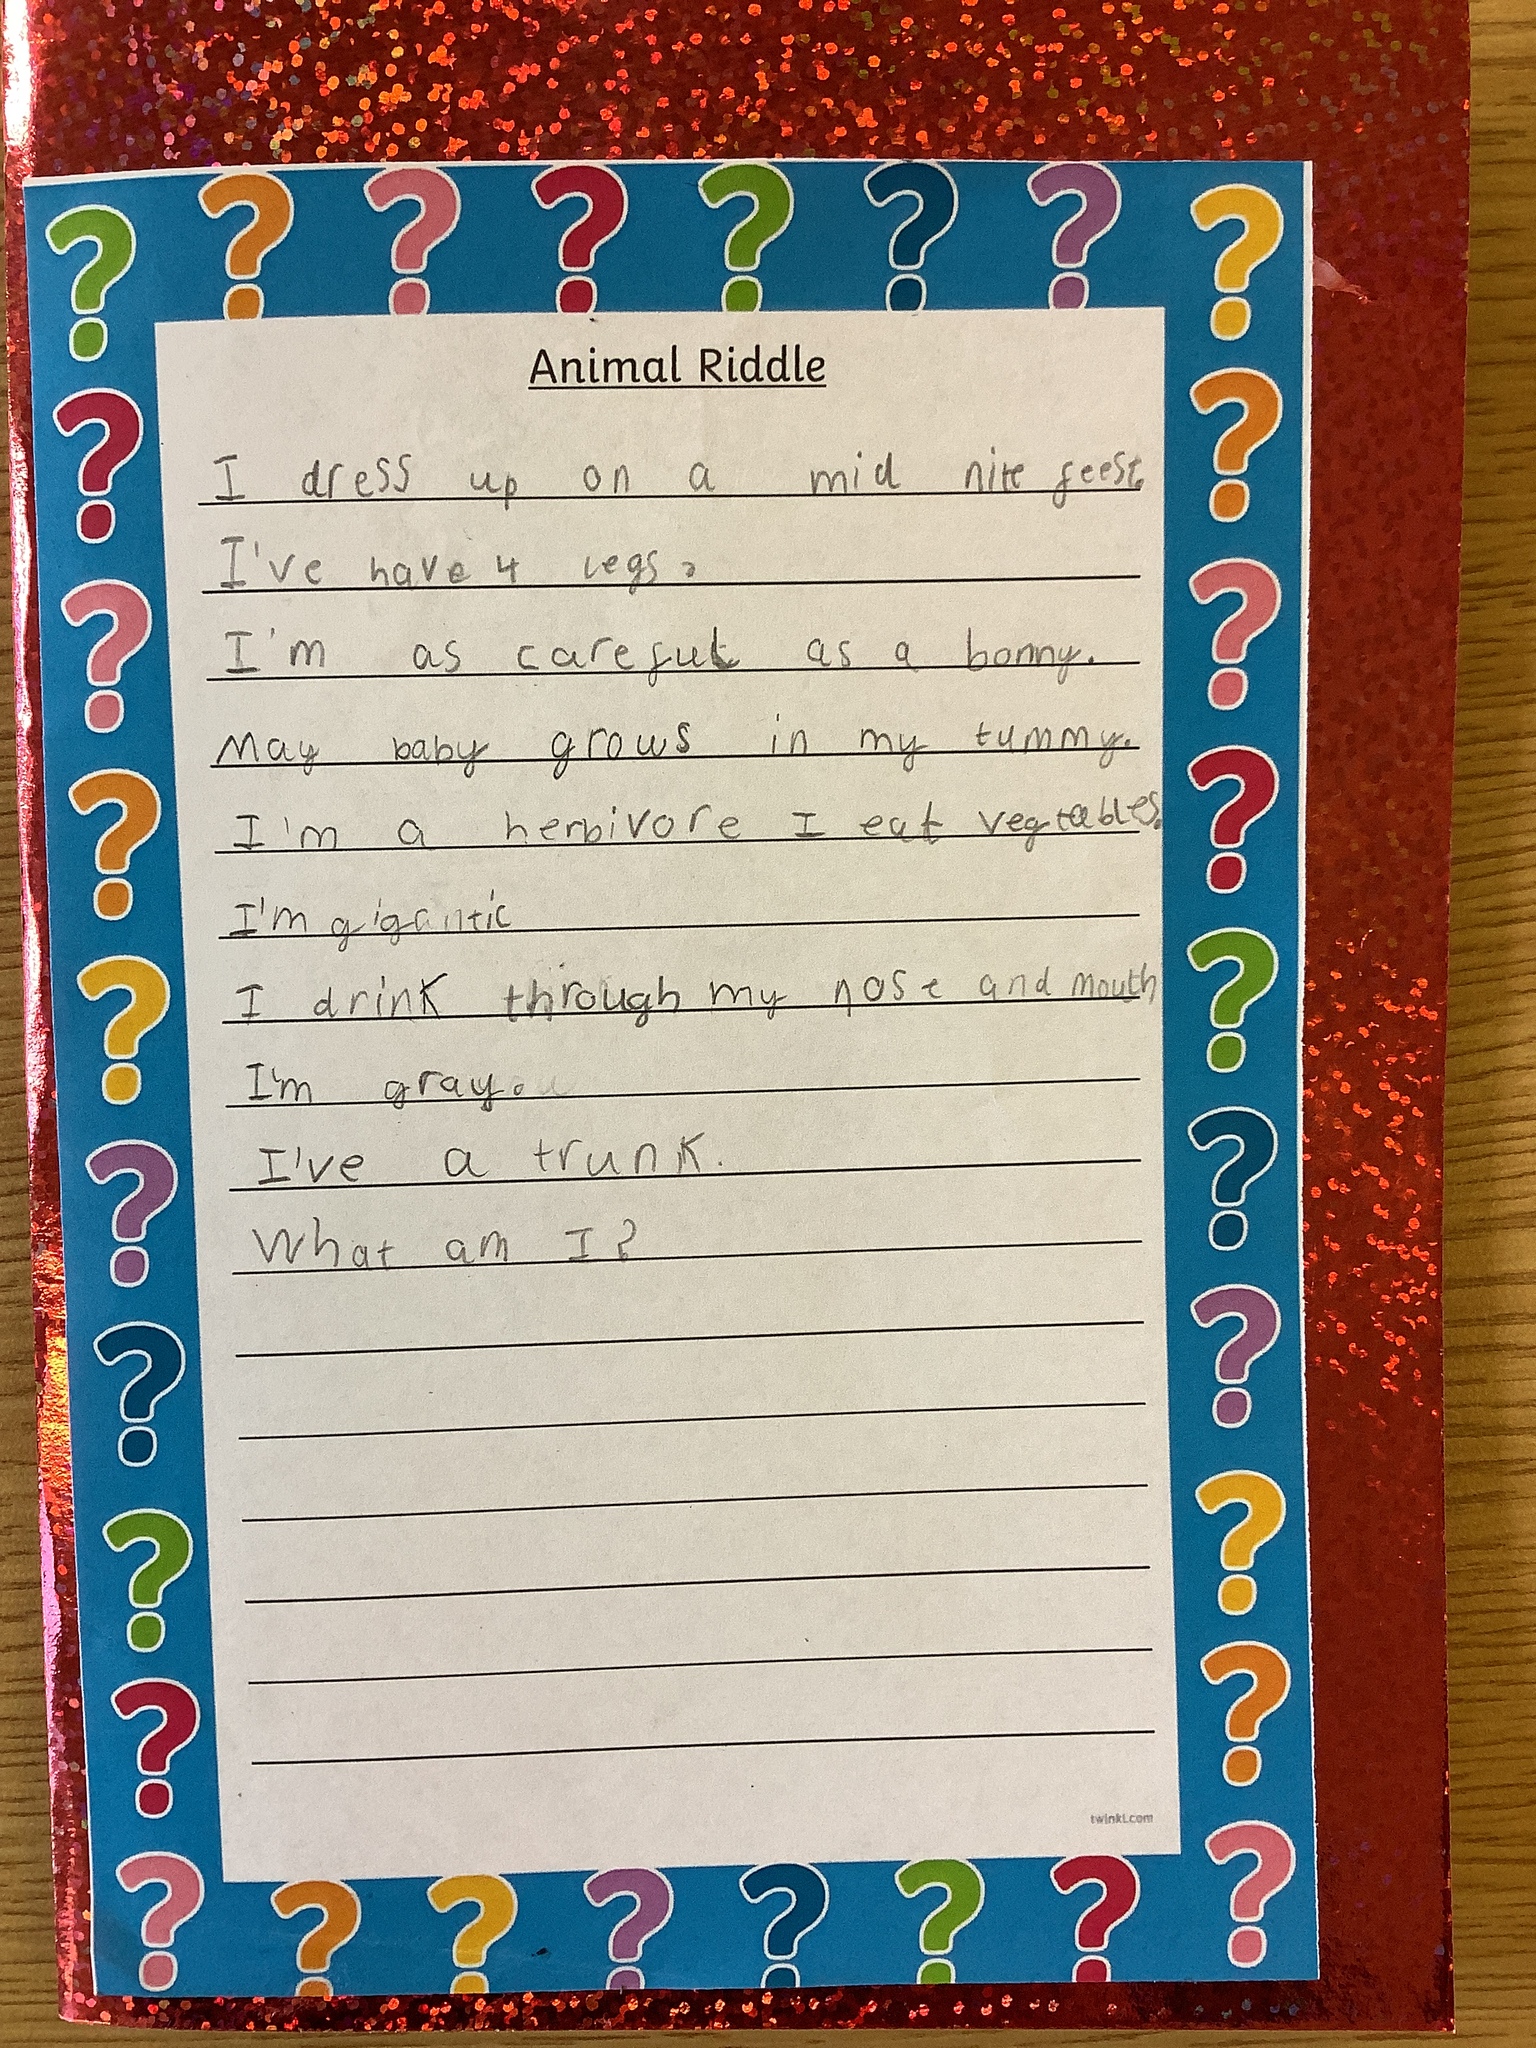 Animal Riddle
I dress up on a mid nite feest.
I've have 4 legs.
I'm as careful as a bonny.
May baby grows in my tummy.
I'm a herbivore I eat vegtables.
I'm gigantic
I drink through my nose and mouth
I'm gray.
I've a trunk.
What am I?
twinkl.com